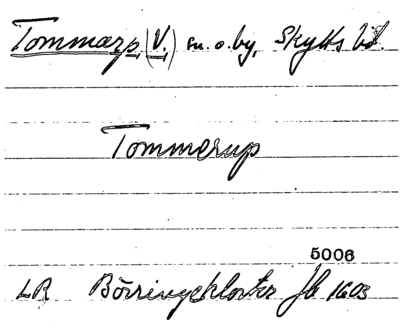 Tommarp (V.) sn. o. by, Skytts hd.
Tommerup
5006
LR Börringekloster Jb 1603